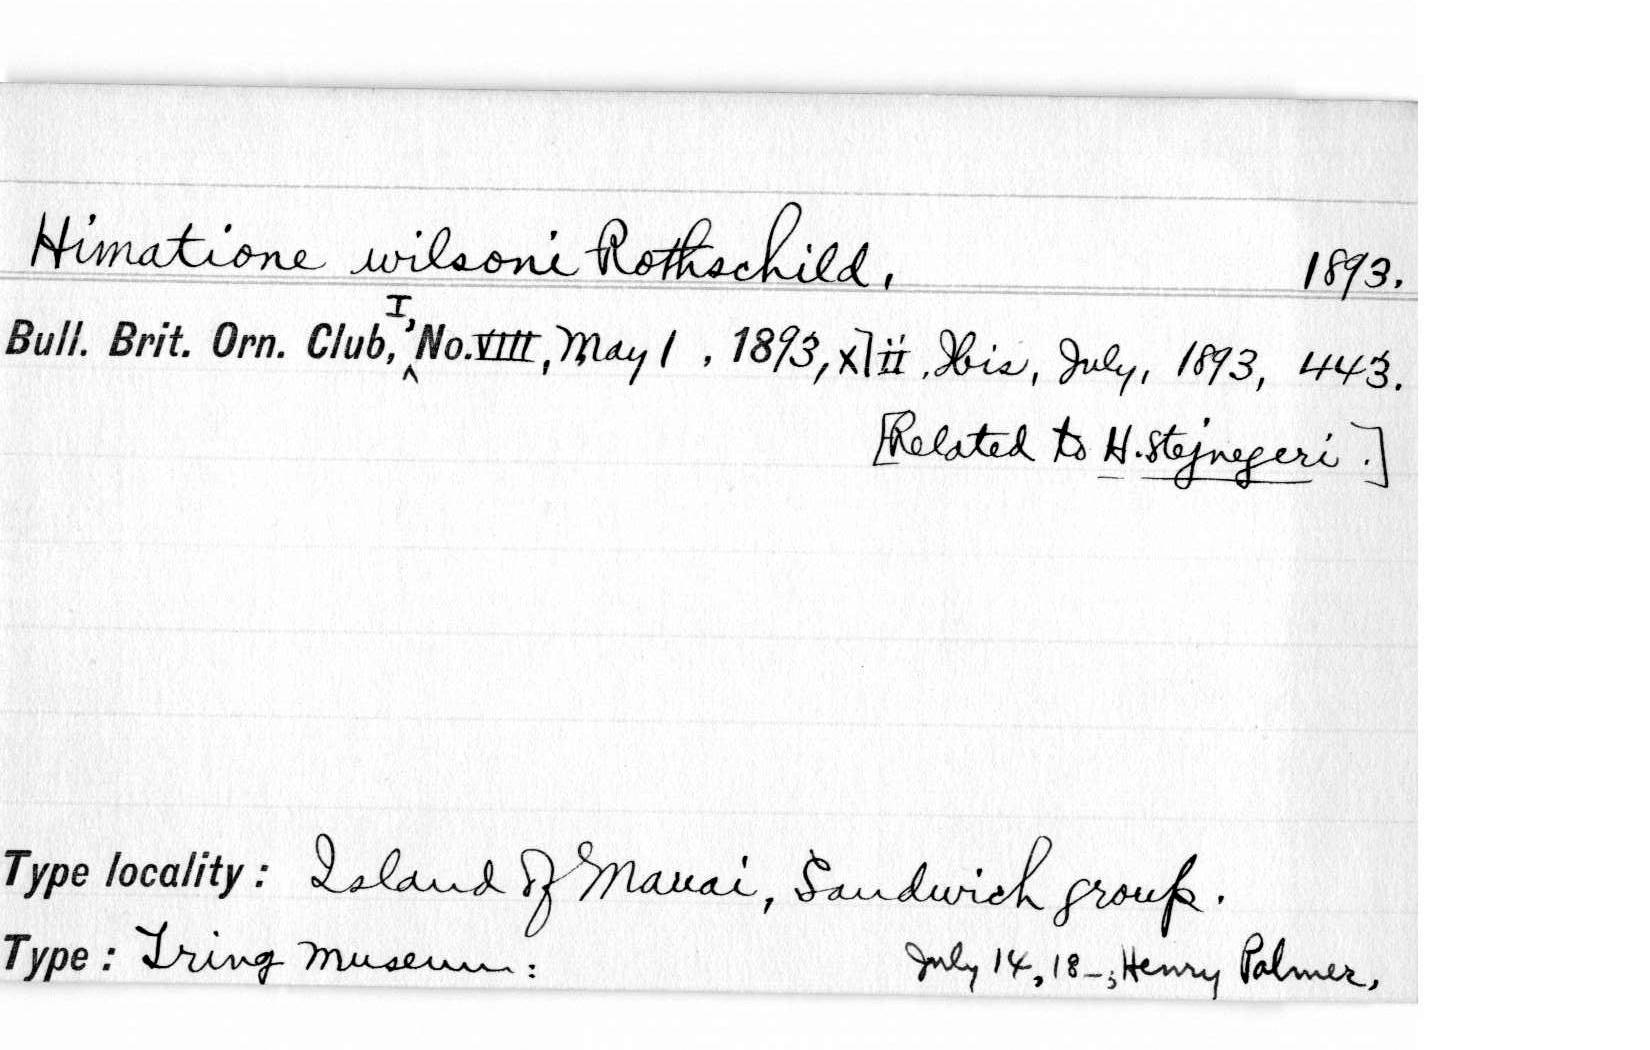 Himatione wilsoni Rothschild, 1893.
Bull. Brit. Orn. Club, I, No. VIII, May 1, 1893, xlii, Ibis, July, 1893, 443.
[Related to H. stejnegeri.]
Type locality: Island of Mauai, Sandwich group.
Type: Tring Museum: July 14, 18–, Henry Palmer,